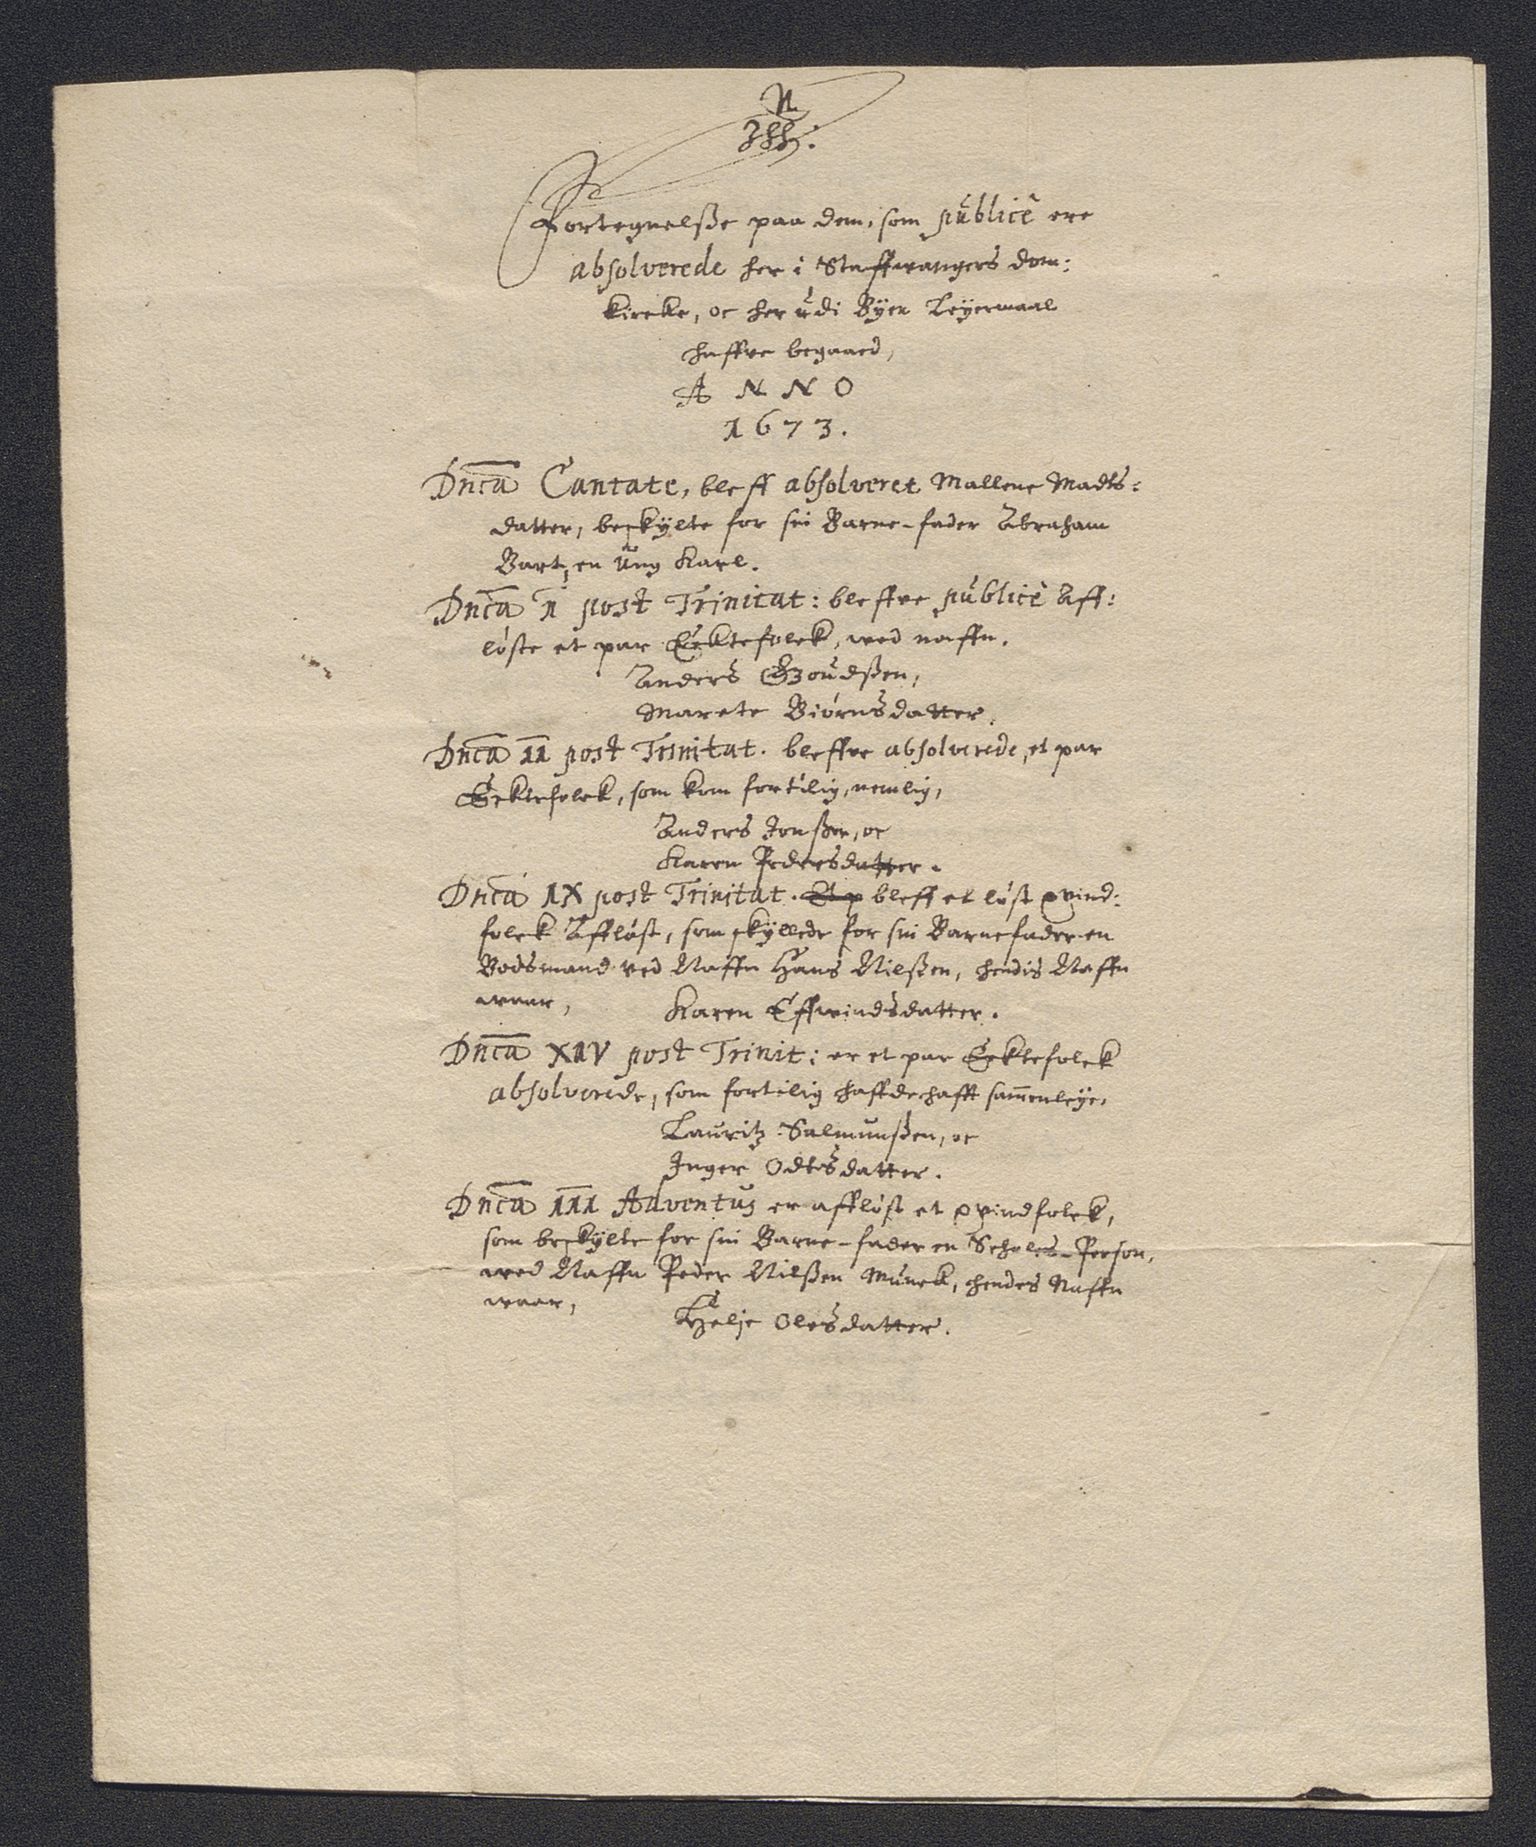 N
Jhh:
Fortegnelsse paa dem, som publicè ere
absolverede her i Staffwangers dom:
kircke, oc her udi Byen Leÿermaal
haffve begaaed,
ANNO
1673.
Dnca Cantate, bleff absolveret Mallene Madts:
datter, beskÿlte for sin Barne-fader Abraham
Bart, en Ung Karl.
Dnca 1 post Trinitat: bleffve publicè Aff:
løste et par Ecktefolck, wed naffn.
Anders Goudssen,
Marete Biørnsdatter.
Dnca 11 post Trinitat. bleffve absolverede, et par
Ecktefolck, som kom fortilig, nemlig,
Anders Jonssen, oc
Karen Pedersdatter.
Dnca 1X post Trinitat. Et p bleff et løst qvind:
folck Affløst, som skÿllede for sin Barnefader en
Bodsmand ved Naffn Hans Nilssen, hendis Naffn
waar,
Karen Effwindsdatter.
Dnca X1V post Trinit: er et par Ecktefolck
absolverede, som fortilig haffde hafft sammenleÿe,
Lauritz Salmunssen, oc
Inger Odtsdatter.
Dnca 111 Adventus er affløst et qvindfolck,
som beskÿlte for sin Barne-fader en Scholes-Person,
wed Naffn Peder Nilssen Munck, hendes Naffn
waar,
Helje Olesdatter.